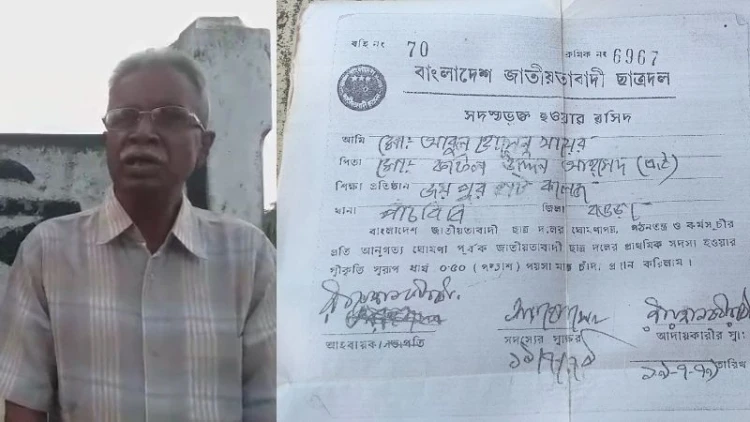 বহি নং 70 ক্রমিক নং 6967
বাংলাদেশ জাতীয়তাবাদী ছাত্রদল
সদস্যভুক্ত হওয়ার রসিদ
আমি মোঃ আবুল হোসেন
পিতা মোঃ উদ্দিন আহমেদ
শিক্ষা প্রতিষ্ঠান জয়পুর হাট কলেজ
থানা পাঁচবিবি জিলা বগুড়া
বাংলাদেশ জাতীয়তাবাদী ছাত্র দলের ঘোষণাপত্র, গঠনতন্ত্র ও কর্মসূচীর
প্রতি আনুগত্য ঘোষণা পূর্বক জাতীয়তাবাদী ছাত্র দলের প্রাথমিক সদস্য হওয়ার
স্বীকৃতি স্বরূপ ০'৫০ (পঞ্চাশ) পয়সা মাত্র চাঁদা প্রদান করিলাম।
আহবায়ক/সভাপতি সদস্যের স্বাক্ষর আদায়কারীর
তারিখ